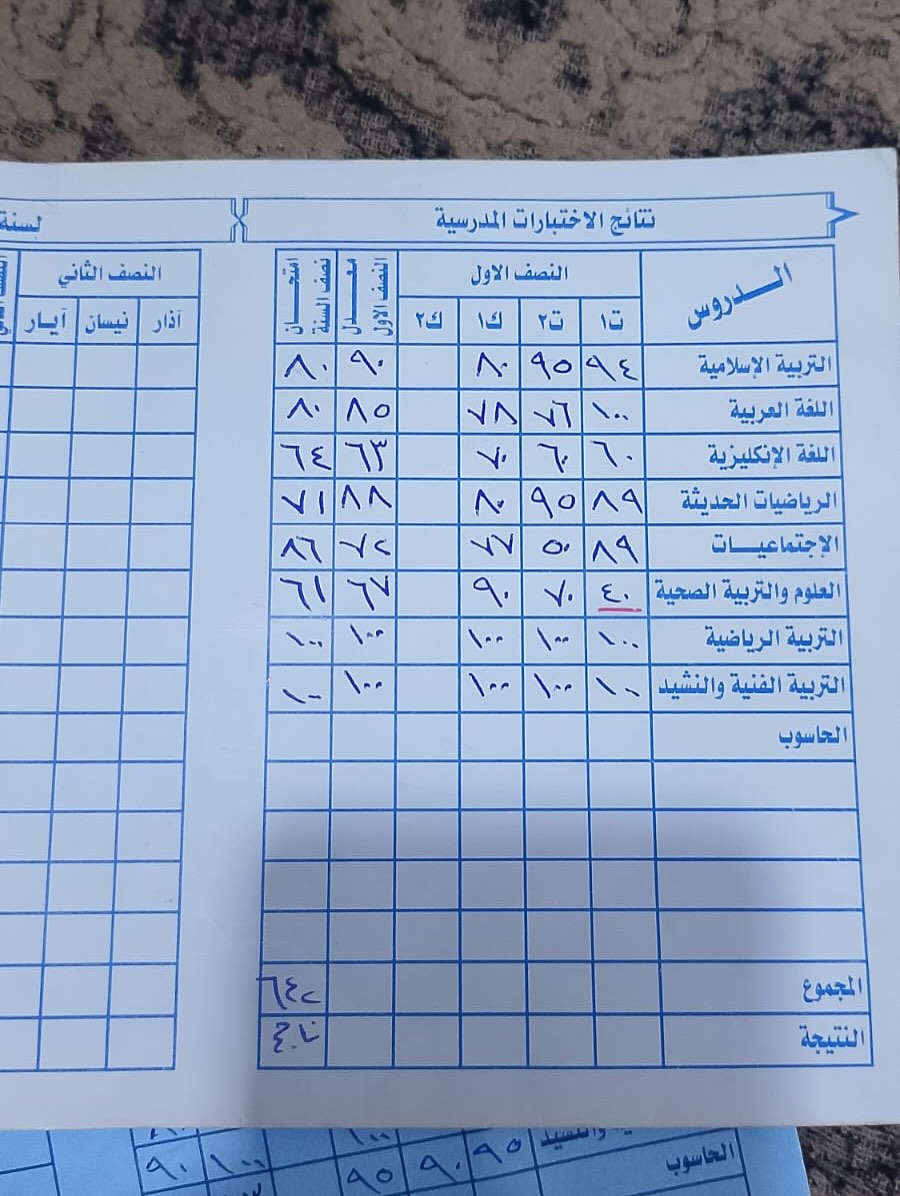 نتائج الاختبارات المدرسية
لسنة
الـدروس النصف الاول معـدل النصف الاول امتحـان نصف السنة النصف الثاني
ت١ ت٢ ك١ ك٢ آذار نيسان آيـار
التربية الإسلامية ٩٤ ٩٥ ٨٠ ٩٠ ٨٠
اللغة العربية ١٠٠ ٧٦ ٧٨ ٨٥ ٨٠
اللغة الإنكليزية ٦٠ ٦٠ ٧٠ ٦٣ ٦٤
الرياضيات الحديثة ٨٩ ٩٥ ٨٠ ٨٨ ٧١
الإجتماعيـــات ٨٩ ٥٠ ٧٧ ٧٢ ٨٦
العلوم والتربية الصحية ٤٠ ٧٠ ٩٠ ٦٧ ٦١
التربية الرياضية ١٠٠ ١٠٠ ١٠٠ ١٠٠ ١٠٠
التربية الفنية والنشيد ١٠٠ ١٠٠ ١٠٠ ١٠٠ ١٠٠
الحاسوب
المجموع ٦٤٢
النتيجة ناجح
والنشيد ١٠٠
الحاسوب ٩٥ ٩٠ ٩٥ ١٠٠ ٩٠